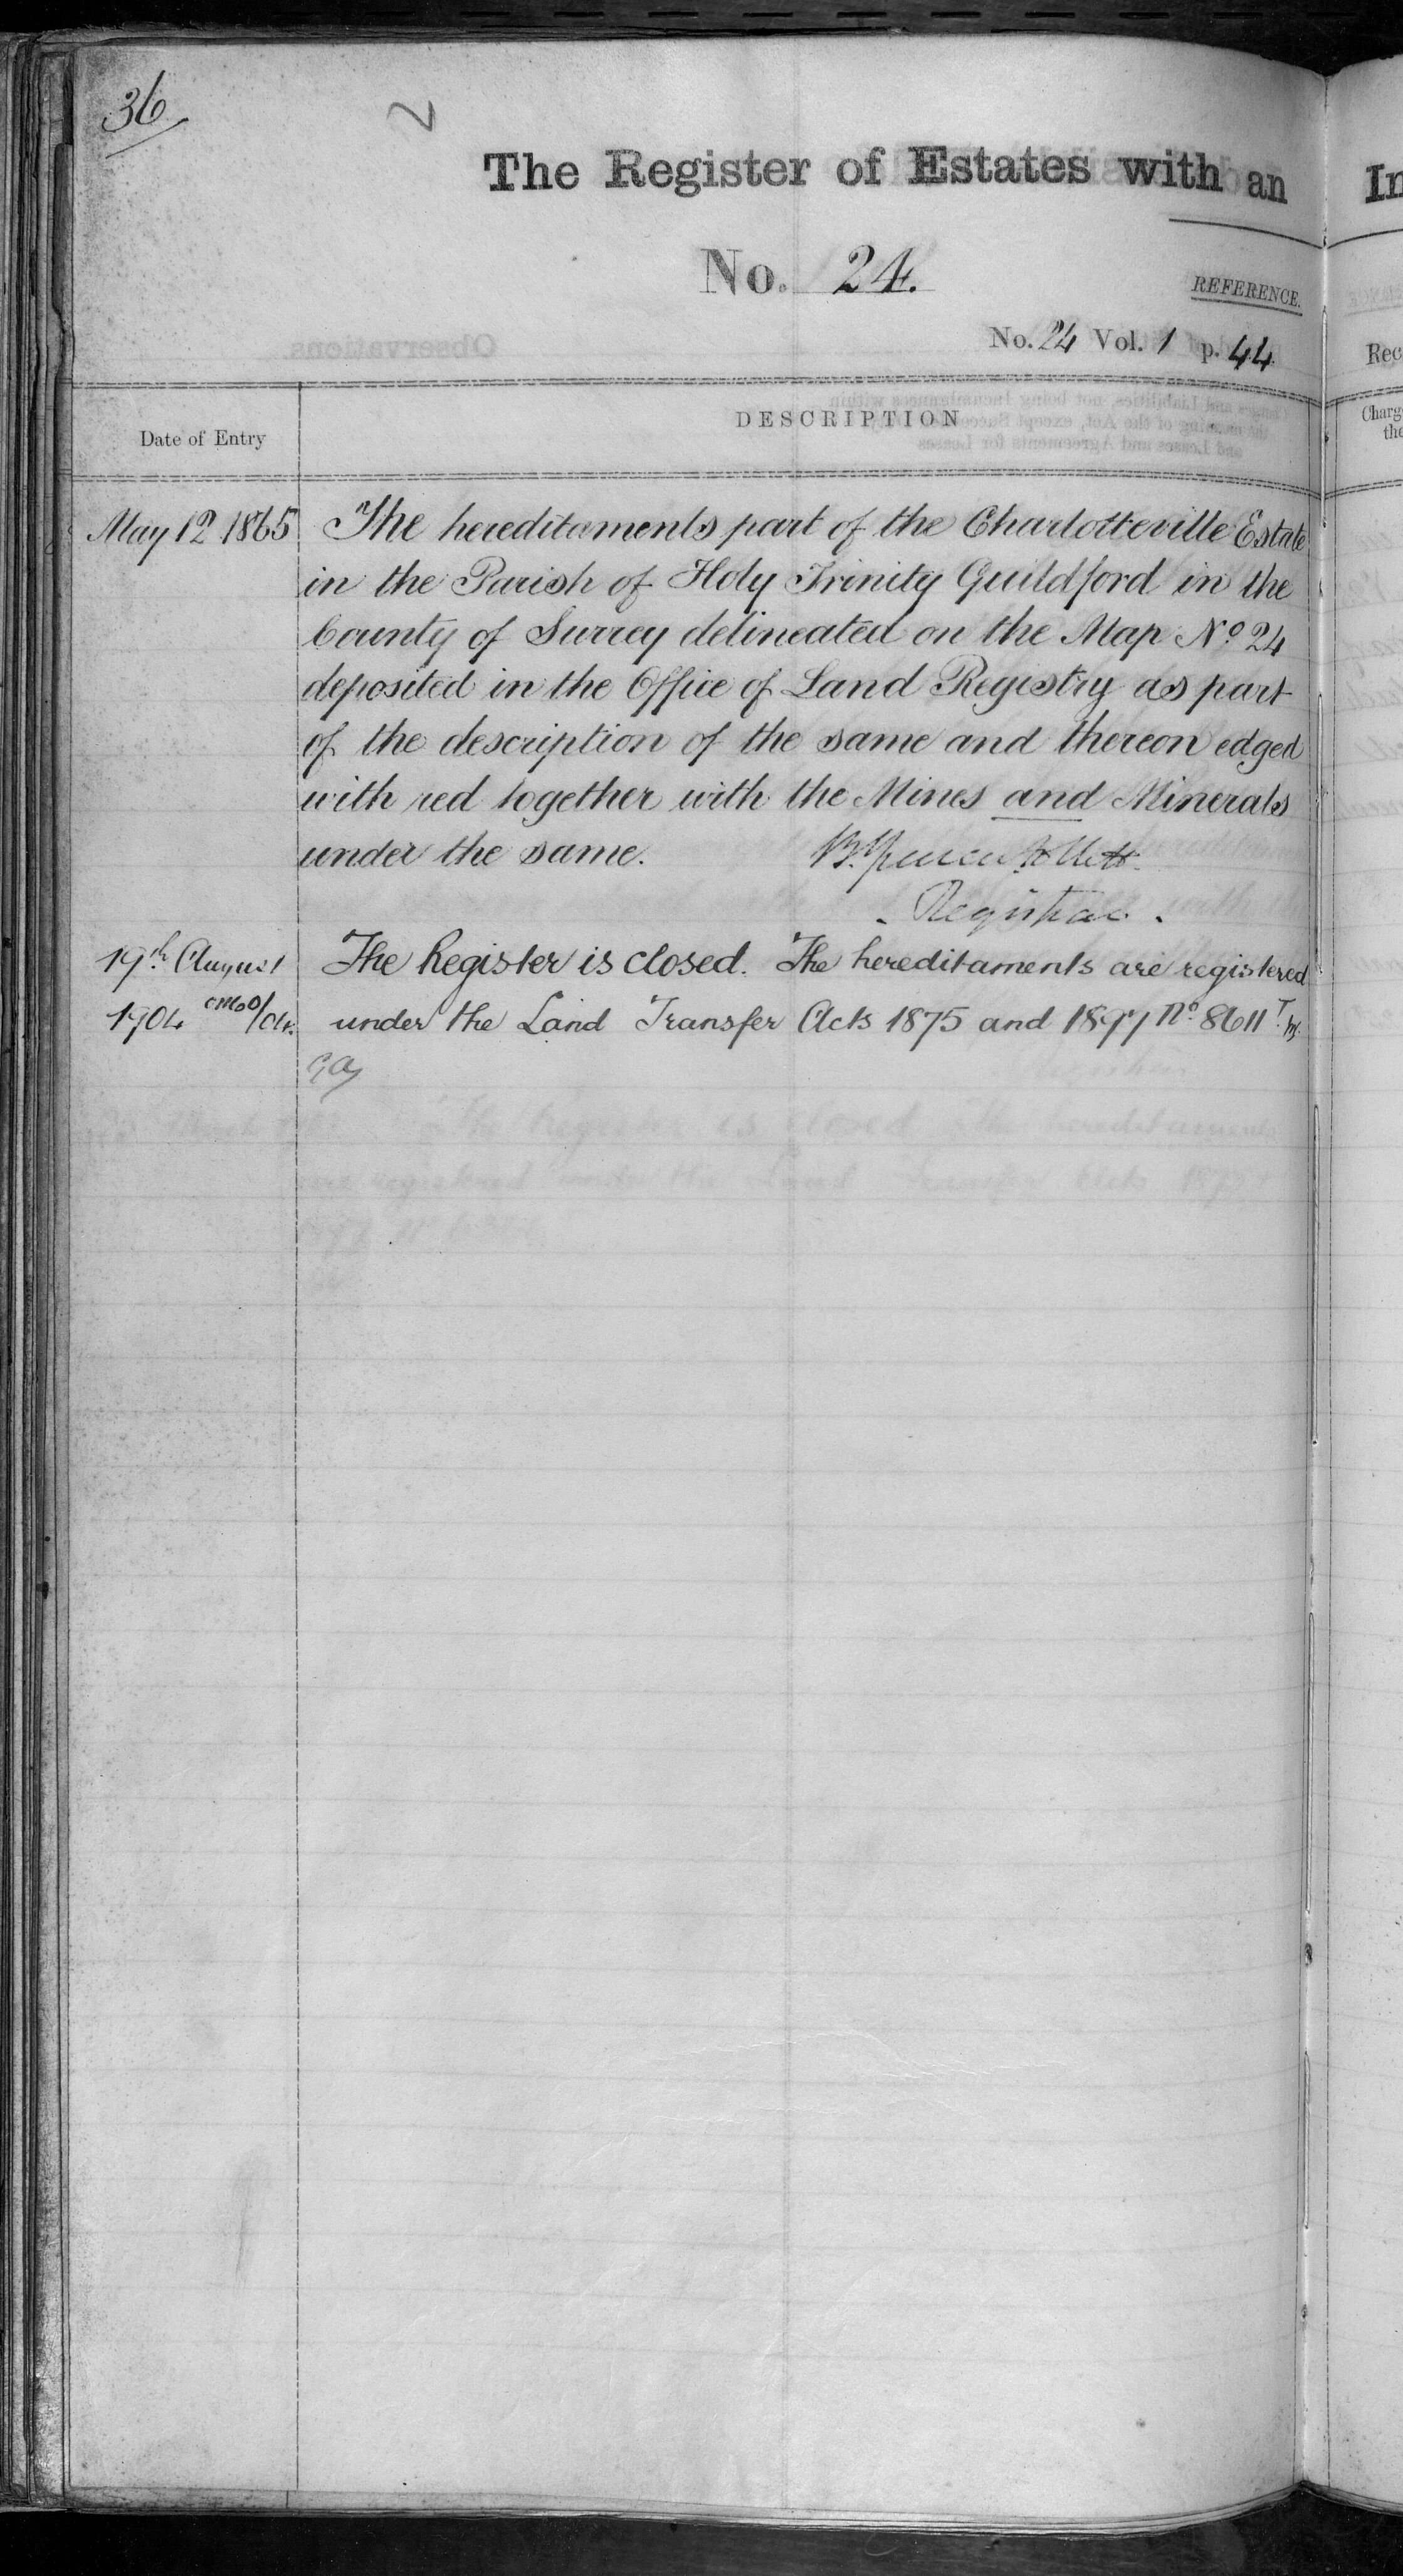 36
2
The Register of Estates with an In
No. 24.
REFERENCE.
No. 24 Vol. 1 p. 44.
Rec
Date of Entry
DESCRIPTION
Charg
the
May 12 1865 The hereditaments part of the Charlotteville Estate
in the Parish of Holy Trinity Guildford in the
County of Surrey delineated on the Map No 24
deposited in the Office of Land Registry as part
of the description of the same and thereon edged
with red together with the Mines and Minerals
under the same.
Registrar.
19th August The Register is closed. The hereditaments are registered
1904 under the Land Transfer Acts 1875 and 1897 No 8611